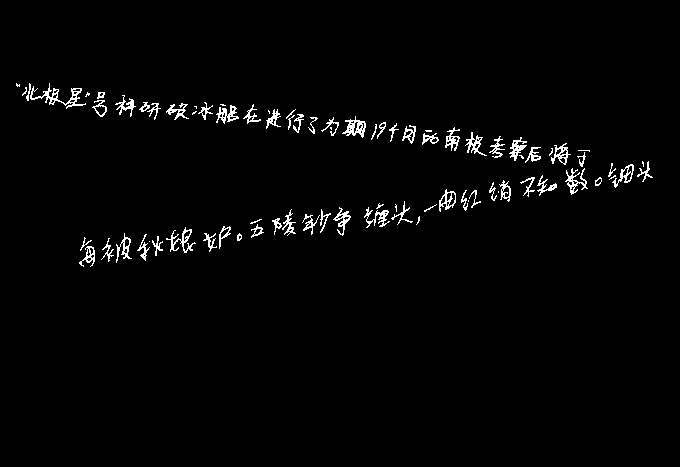 “北极星”号科研破冰船在进行了为期19个月的南极考察后将于
每被秋娘妒。五陵年少争缠头,一曲红绡不知数。钿头